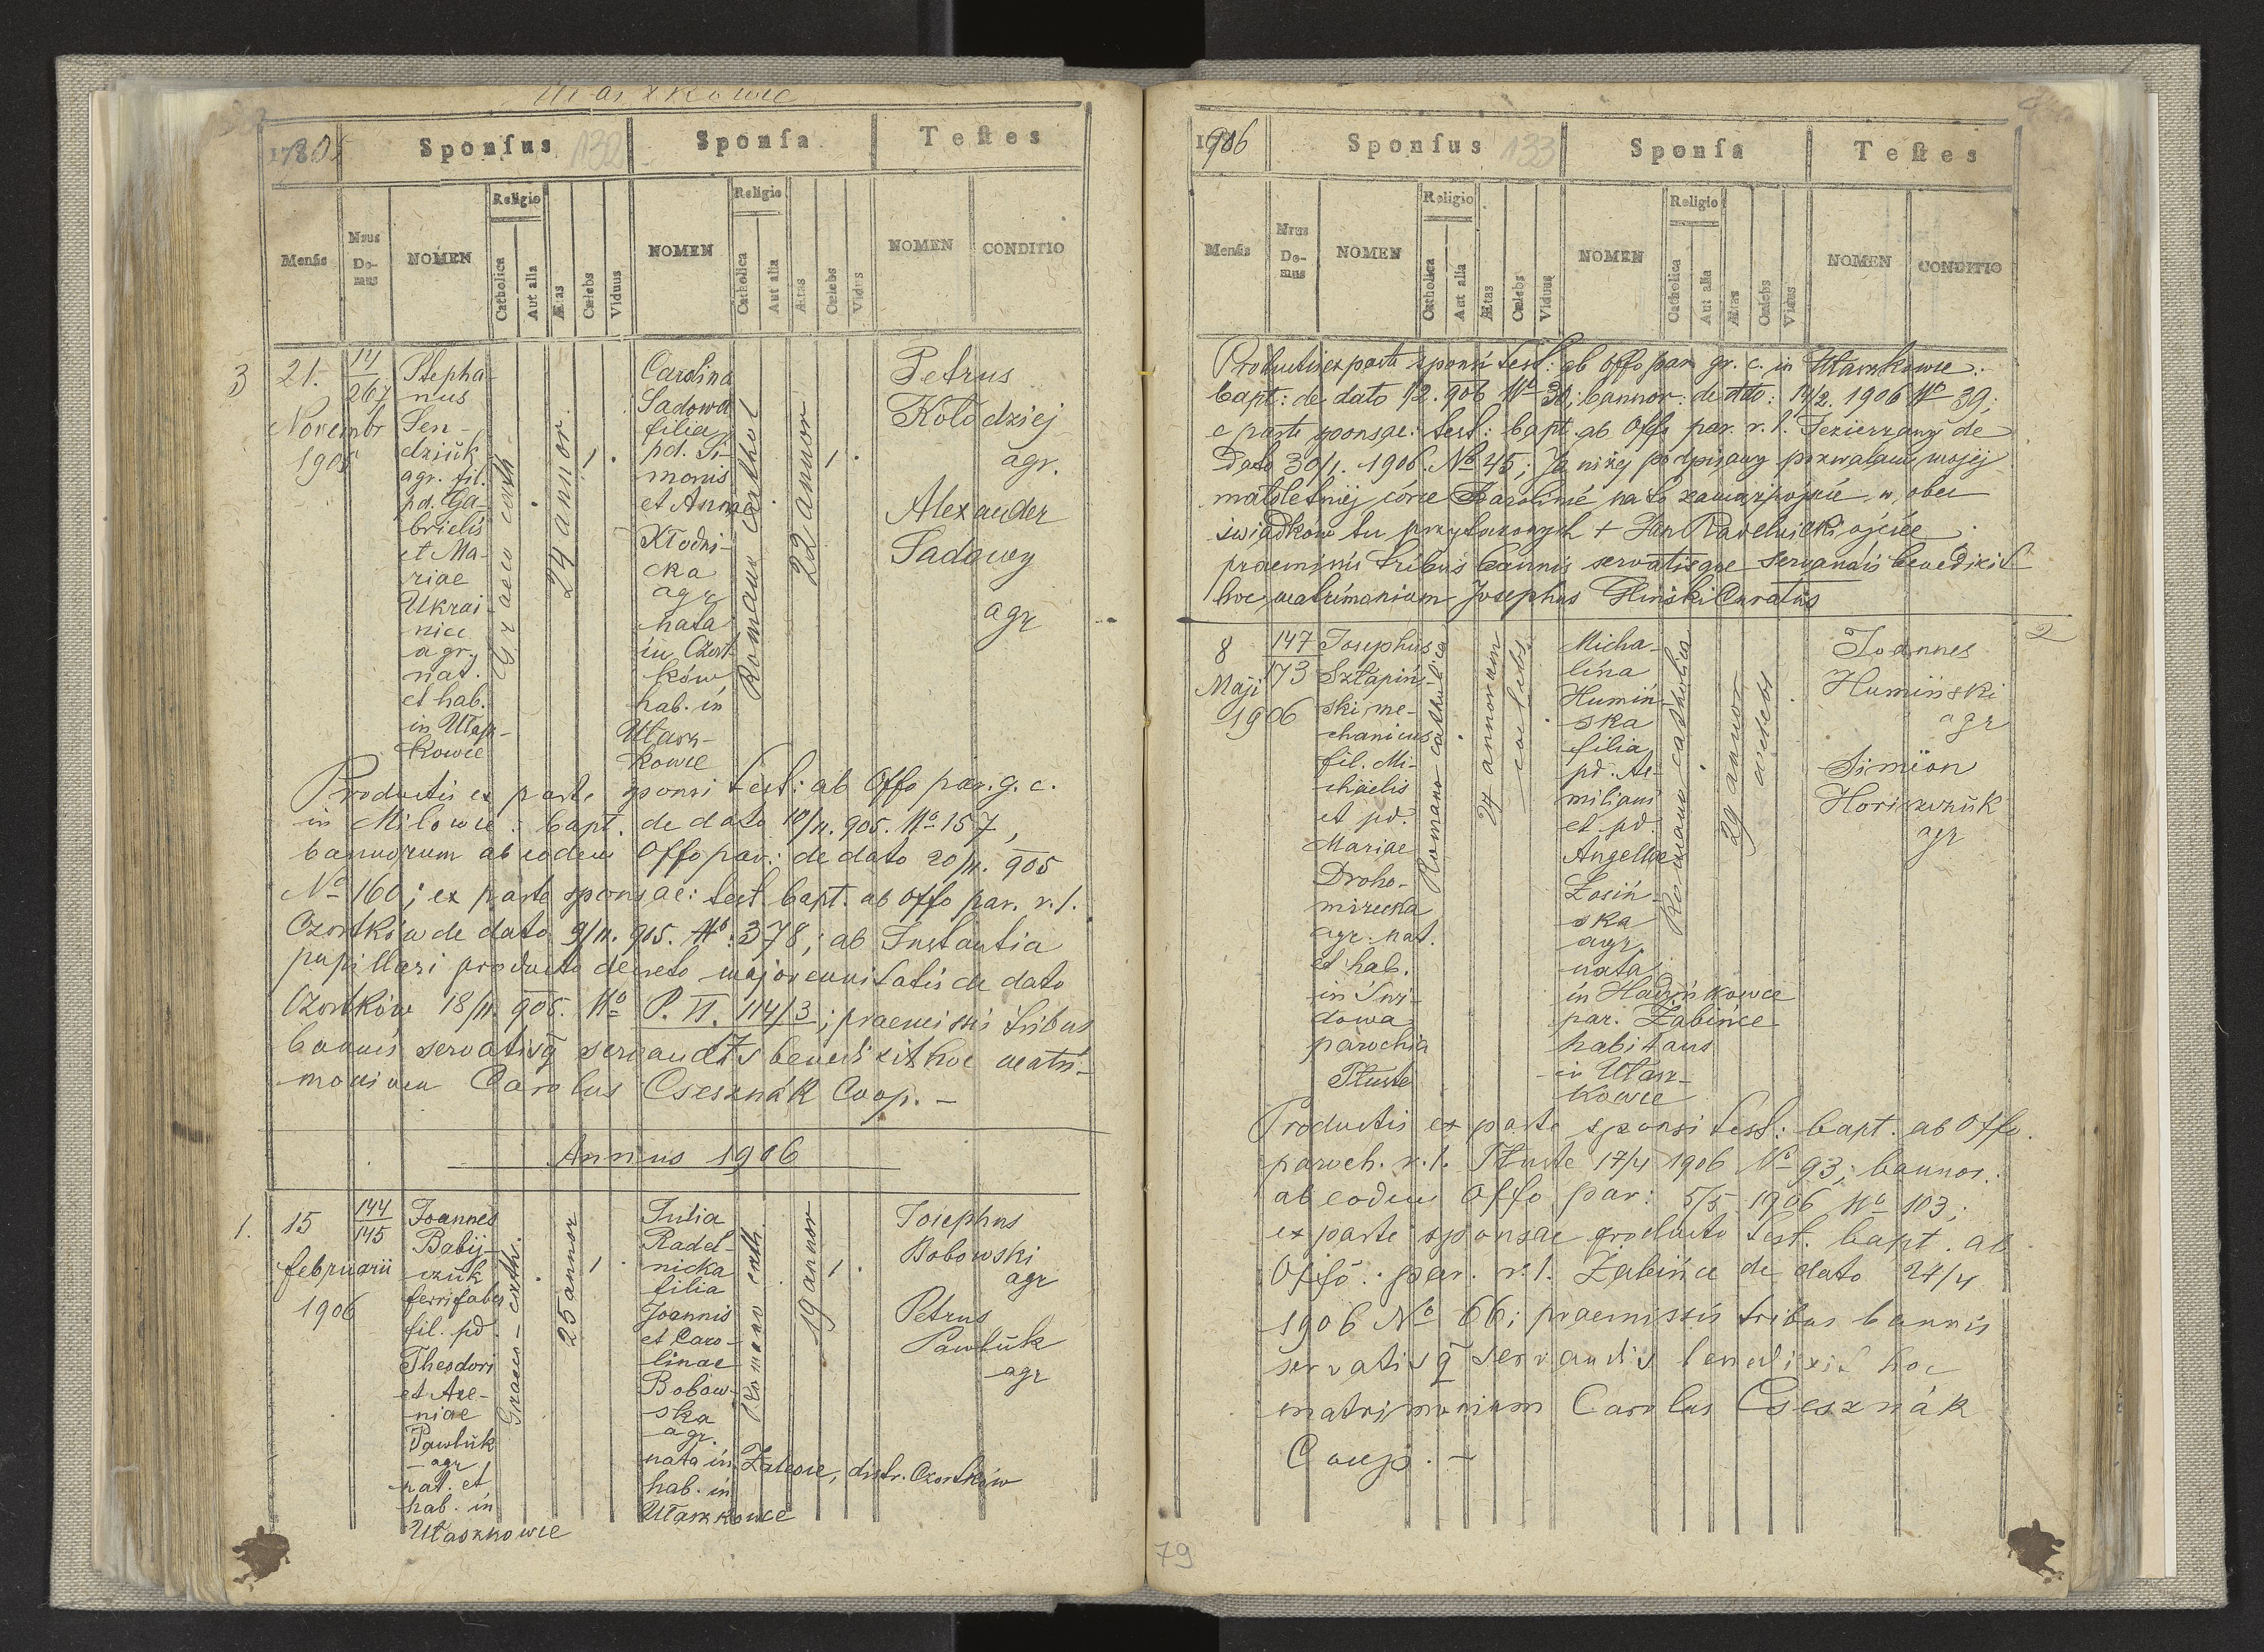 Ułaszkowce
1905
Sponſus
132
Sponſa
Teſtes
Menſis
Nrus Domus
NOMEN
Religio
Catholica
Aut alia
Ætas
Cælebs
Viduus
NOMEN
Religio
Catholica
Aut alia
Ætas
Cælebs
Vidus
NOMEN
CONDITIO
3
21.
Novembr
1905
14
267
Stepha-
nus
Sen-
dziuk
agr. fil.
pd. Ga-
brielis
et Ma-
riae
Ukrai-
niec
agr.
nat.
et hab.
in Ułasz-
kowce
Graeco cath.
24 annor.
1.
Carolina
Sadowa
filia
pd. Si-
monis
et Annae
Kłodni-
cka
agr
nata
in Czort-
ków
hab. in
Ułasz-
kowce
Romano cathol
22 annor
1.
Petrus
Kołodziej
agr.
Alexander
Sadowy
agr
Productis ex parte sponsi test: ab Offo par. g. c.
in Milowce: bapt. de dato 10/11. 905. No 157,
bannorum ab eodem Offo par: de dato 20/11. 905
No 160; ex parte sponsae: test. bapt. ab Offo par. r. l.
Czortków de dato 9/11. 905. No. 378; ab Instantia
pupillari producto decreto majorennitatis de dato
Czortków 18/11. 905. No P. VI. 114/3; praemissis tribus
bannis servatisq servandis benedixit hoc matri-
monium Carolus Csesznák Coop. -
Annus 1906
1.
15
februarii
1906
144
145
Joannes
Babij-
czuk
ferrifaber
fil. pd.
Theodori
et Axe-
niae
Pawluk
- agr
nat. et
hab. in
Ułaszkowce
Graeco - cath.
25 annor
1.
Julia
Radel-
nicka
filia
Joannis
et Caro-
linae
Bobow-
ska
agr.
nata in Zalesie, distr. Czortków
hab. in
Ułaszkowce
Romano cath.
19 annor
1.
Josephus
Bobowski
agr
Petrus
Pawluk
agr
1906
Sponſus
133
Sponſa
Teſtes
Menſis
Nrus Domus
NOMEN
Religio
Catholica
Aut alia
Ætas
Cælebs
Viduus
NOMEN
Religio
Catholica
Aut alia
Ætas
Cælebs
Vidus
NOMEN
CONDITIO
Productis ex parte sponsi test: ab offo par gr. c. in Ułaszkowce:
bapt: de dato 12. 906 No 30; bannor: de dto: 14/2. 1906 No 39;
e parte sponsae: test: bapt. ab Offo par. r. l. Jezierzany de
dato 30/1. 1906. No 45; Ja niżej podpisany pozwalam mojej
małoletniej córce Karolinie na to zamążpójście w obec
świadków tu przytoczonych + Jan Radelnicki ojciec
praemissis tribus bannis servatisque servandis benedixit
hoc matrimonium Josephus Gliński Curatus
8
Maji
1906
147
173
Josephus
Sztapiń-
ski me-
chanicus
fil. Mi-
chaelis
et pd.
Mariae
Droho-
mirecka
agr. nat.
et hab.
in Świ-
dowa
parochia
Tłuste
Romano catholica
24 annorum
caelebs
Micha-
lina
Humiń-
ska
filia
pd. Ae-
miliani
et pd.
Angellae
Łosiń-
ska
agr
nata
in Hadyńkowce
par. Żabińce
habitans
in Ułasz-
kowce
Romano catholica
29 annor
caelebs
Joannes
Humiński
agr
Simion
agr
2
Productis ex parte sponsi test: bapt. ab Offo.
paroch. r. l. Tłuste 17/4 1906 No 93; bannor.:
ab eodem Offo par: 5/5 1906 No 103;
ex parte sponsae producto test. bapt. ab
Offo: par. r. l. Żabińce de dato 24/4
1906 No 66; praemissis tribus bannis
servatisq servandis benedixit hoc
matrimonium Carolus Csesznák
Coop. -
79